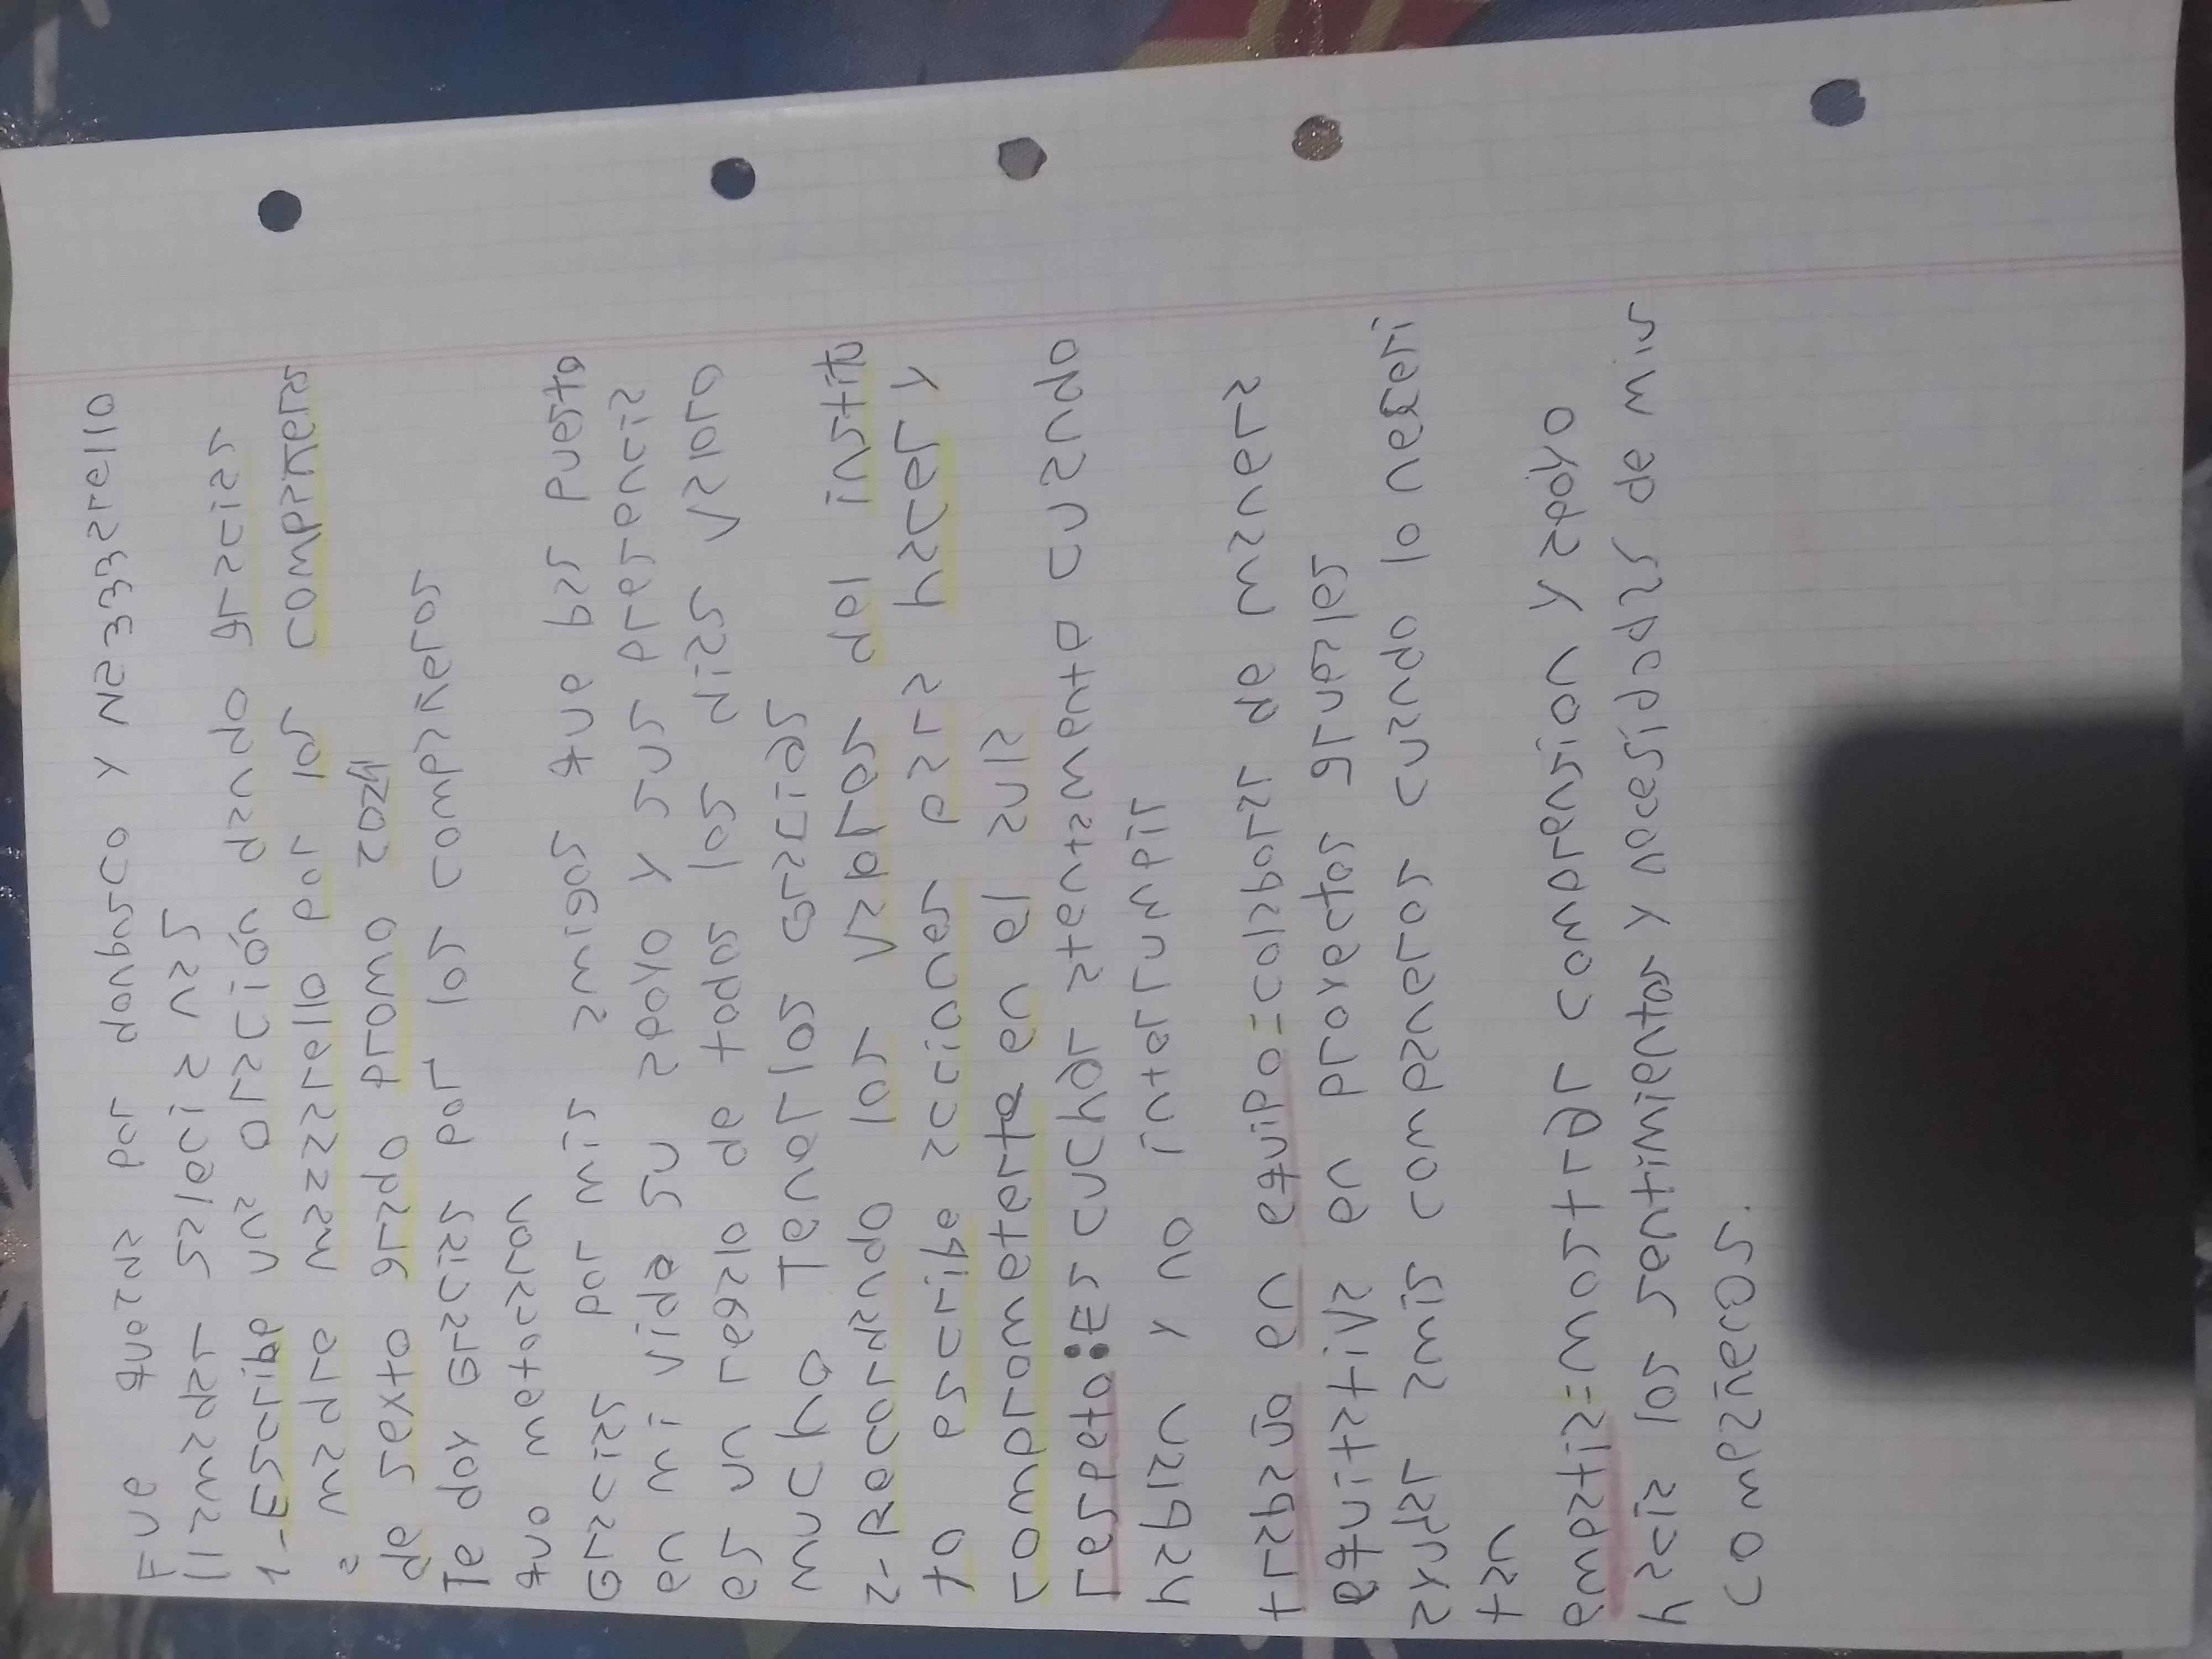 Fue queens por donbusco y Nazzzarello
llamdar salecianas
1-Escribe una oración dando gracias
a madre mazzarello por los compañeros
de sexto grado promo 2024
Te doy Gracias por los compañeros
que metocaron
Gracias por mis amigos que has puesto
en mi vida su apoyo y sus presencia
es un regalo de todos los dias Valoro
mucho Tenerlos Gracias
2-Recordando los valores del institu
to escribe acciones para hacer y
comprometerte en el aula
respeto: Escuchar atentamente cuando
hablan y no interrumpir
trabajo en equipo=colaborar de manera
equitativa en proyectos gruales
ayudar amis companeros cuando lo nesesi
tan
empatia=mostrar comprension y apoyo
hacia los sentimientos y necesidads de mis
compañeros.